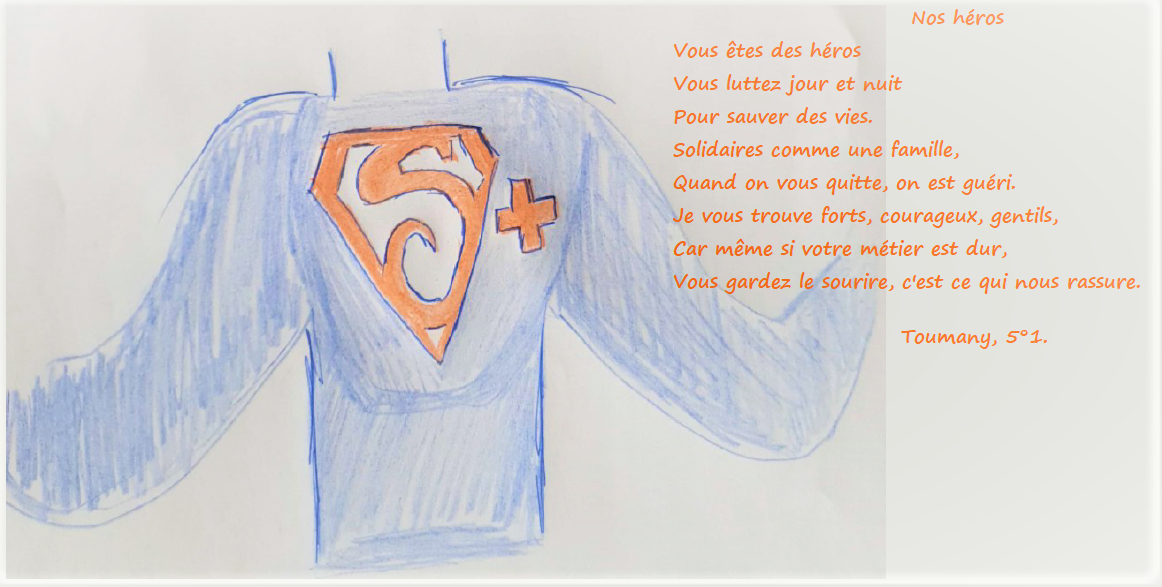 Nos héros
Vous êtes des héros
Vous luttez jour et nuit
Pour sauver des vies.
Solidaires comme une famille,
Quand on vous quitte, on est guéri.
Je vous trouve forts, courageux, gentils,
Car même si votre métier est dur,
Vous gardez le sourire, c'est ce qui nous rassure.
Toumany, 5°1.
S+